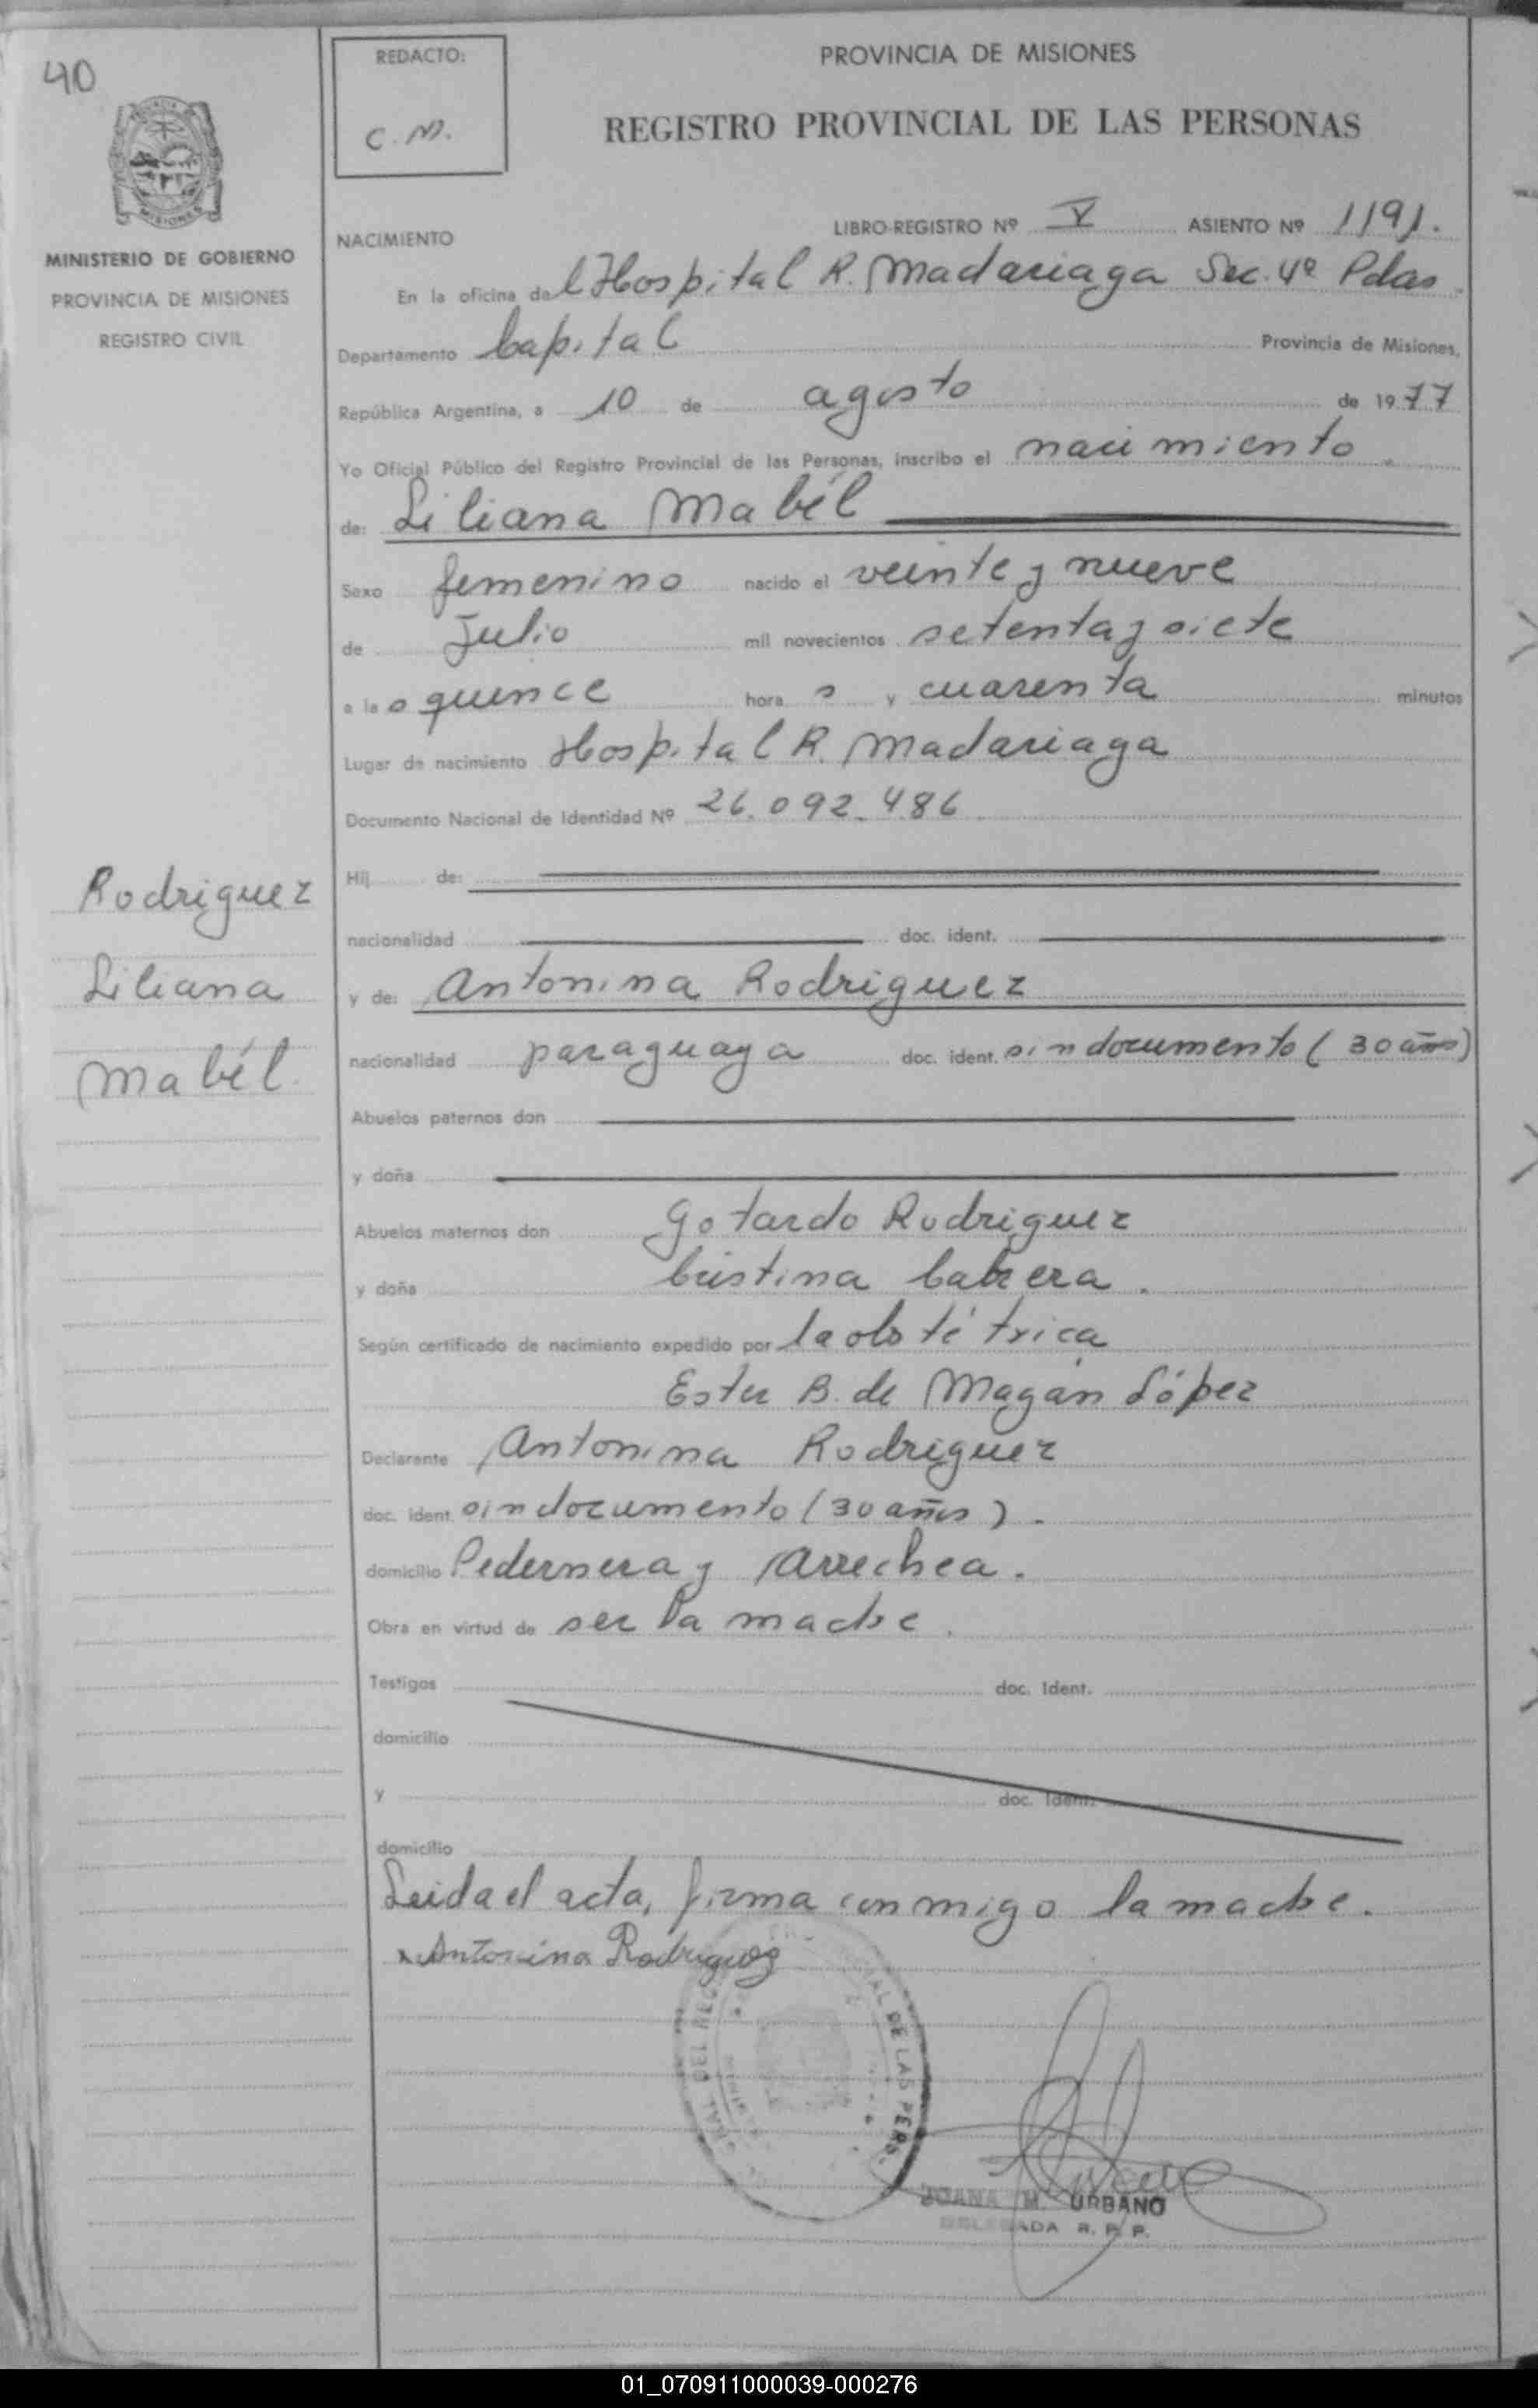 40
REDACTO:
C. M.
PROVINCIA DE MISIONES
REGISTRO PROVINCIAL DE LAS PERSONAS
MISIONES
MINISTERIO DE GOBIERNO
PROVINCIA DE MISIONES
REGISTRO CIVIL
NACIMIENTO
LIBRO-REGISTRO Nº V ASIENTO Nº 1191.
En la oficina del Hospital R. Madariaga Sec. 4º Pdas.
Departamento Capital Provincia de Misiones,
República Argentina, a 10 de agosto de 1977
Yo Oficial Público del Registro Provincial de las Personas, inscribo el nacimiento.
de: Liliana Mabél
Sexo femenino nacido el veinte y nueve
de Julio mil novecientos setenta y siete
a las quince hora s y cuarenta minutos
Lugar de nacimiento Hospital R. Madariaga
Documento Nacional de Identidad Nº 26.092.486
Rodriguez
Liliana
Mabél.
Hij de:
nacionalidad doc. ident.
y de: Antonina Rodriguez
nacionalidad paraguaya doc. ident. sin documento (30 años)
Abuelos paternos don
y doña
Abuelos maternos don Gotardo Rodriguez
y doña Cristina Cabrera.
Según certificado de nacimiento expedido por la obstétrica
Ester B. de Magán López
Declarante Antonina Rodriguez
doc. ident. sin documento (30 años).
domicilio Pedernera y Arrechea.
Obra en virtud de ser la madre.
Testigos doc. Ident.
domicilio
y doc. Ident.
domicilio
Leida el acta, firma conmigo la madre.
x Antonina Rodriguez
DEL REG AL DE LAS PERS.
JOANA M. URBANO
DELEGADA R. P. P.
01_070911000039-000276